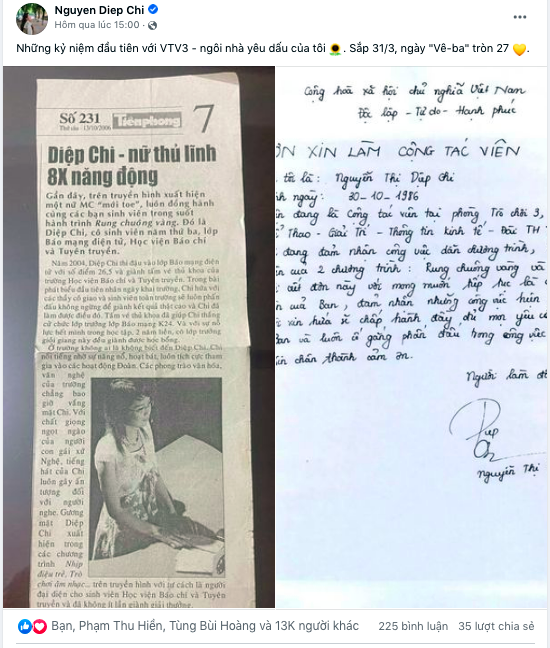 Nguyen Diep Chi
Hôm qua lúc 15:00 ·
Những kỷ niệm đầu tiên với VTV3 - ngôi nhà yêu dấu của tôi 🌻. Sắp 31/3, ngày "Vê-ba" tròn 27 💛.
Số 231
Thứ sáu - 13/10/2006
Tiềnphong
7
Diệp Chi - nữ thủ lĩnh
8X năng động
Gần đây, trên truyền hình xuất hiện
một nữ MC "mới toe", luôn đồng hành
cùng các bạn sinh viên trong suốt
hành trình Rung chuông vàng. Đó là
Diệp Chi, cô sinh viên năm thứ ba, lớp
Báo mạng điện tử, Học viện Báo chí
và Tuyên truyền.
Năm 2004, Diệp Chi thi đậu vào lớp Báo mạng điện
tử với số điểm 26,5 và giành tấm vé thủ khoa của
trường Học viện Báo chí và Tuyên truyền. Trong bài
phát biểu đầu tiên nhân ngày khai trường, Chi hứa với
các thầy cô giáo và sinh viên toàn trường sẽ luôn phấn
đấu không ngừng để giành kết quả thật cao và Chi đã
làm được điều đó. Tấm vé thủ khoa đã giúp Chi thẳng
cử chức lớp trưởng lớp Báo mạng K24. Và với sự nỗ
lực hết mình trong học tập, 2 năm liền, cô lớp trưởng
giỏi giang này đều giành được học bổng.
Ở trường không ai là không biết đến Diệp Chi. Chi
nổi tiếng nhờ sự năng nổ, hoạt bát, luôn tích cực tham
gia vào các hoạt động Đoàn. Các phong trào văn hóa,
văn nghệ
của trường
chẳng bao
giờ vắng
mặt Chi. Với
chất giọng
ngọt ngào
của người
con gái xứ
Nghệ, tiếng
hát của Chi
luôn gây ấn
tượng đối
với người
nghe. Gương
mặt Diệp
Chi xuất
hiện trong
các chương
trình Nhịp
điệu trẻ, Trò
chơi âm nhạc... trên truyền hình với tư cách là người
đại diện cho sinh viên Học viện Báo chí và Tuyên
truyền và đã không ít lần giành giải thưởng.
Cộng hòa xã hội chủ nghĩa Việt Nam
Độc lập - Tự do - Hạnh phúc
ƠN XIN LÀM CỘNG TÁC VIÊN
tôi là : Nguyễn Thị Diệp Chi
nh ngày : 30-10-1986
ện đang là Cộng tác viên tại phòng Trò chơi 3,
Thao - Giải Trí - Thông tin kinh tế - Đài TH
đang đảm nhận công việc dẫn chương trình,
qua 2 chương trình : Rung chuông vàng và
đơn này với mong muốn tiếp tục là
của Ban, đảm nhận những công việc hiện
xin hứa sẽ chấp hành đầy đủ mọi yêu cầu
Ban và luôn cố gắng phấn đấu trong công việc
in chân thành cảm ơn.
Người làm đ
Diệp
Chi
Nguyễn Thị
Bạn, Phạm Thu Hiền, Tùng Bùi Hoàng và 13K người khác
225 bình luận 35 lượt chia sẻ